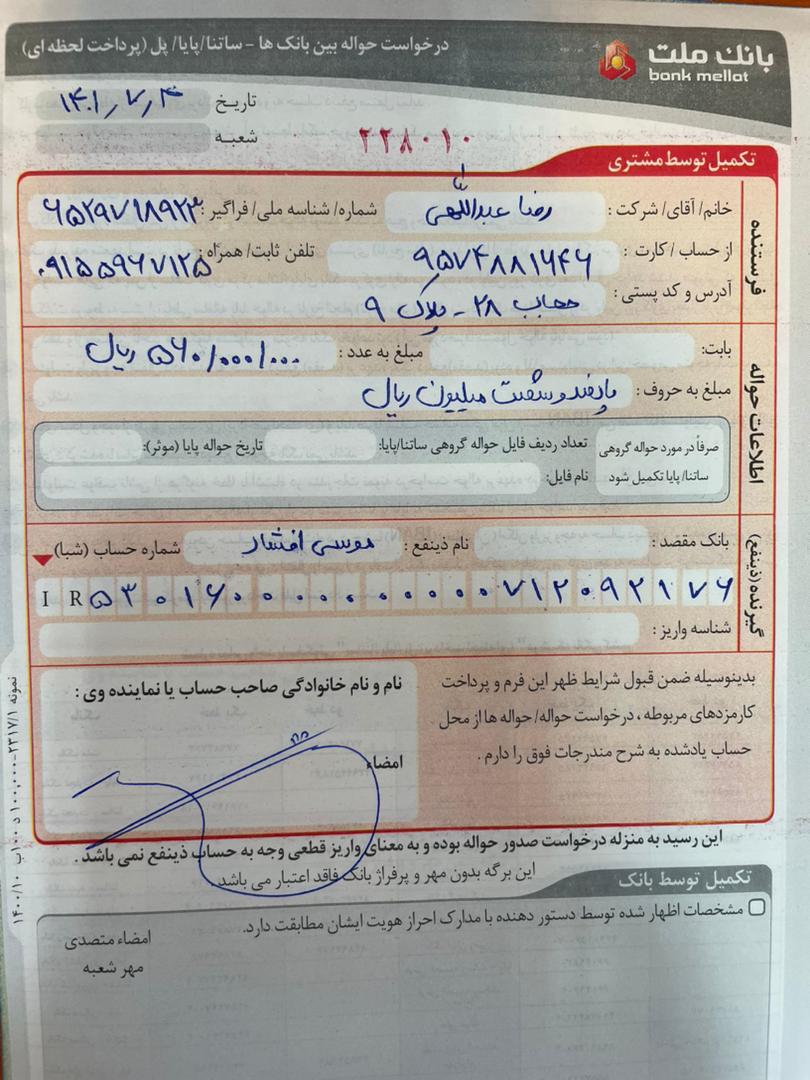 بانک ملت
bank mellat
درخواست حواله بین بانک ها - ساتنا/پایا/ پل (پرداخت لحظه ای)
تاریخ ۱۴۰۱,۷,۴
شعبه
۲۲۸۰۱۰
تکمیل توسط مشتری
فرستنده
خانم/ آقای/ شرکت : رضا عبداللهی شماره/ شناسه ملی/ فراگیر : ۶۵۲۹۷۱۸۹۲۳
از حساب /کارت : ۹۵۷۴۸۸۱۶۴۶ تلفن ثابت/ همراه : ۰۹۱۵۵۹۶۷۱۲۵
آدرس و کد پستی : ۲۸ - پلاک ۹
اطلاعات حواله
بابت: مبلغ به عدد : ۵۶۰/۰۰۰/۰۰۰ ریال
مبلغ به حروف : پانصدوشصت میلیون ریال
صرفاً در مورد حواله گروهی ساتنا/ پایا تکمیل شود
تعداد ردیف فایل حواله گروهی ساتنا/پایا: تاریخ حواله پایا (موثر):
نام فایل:
گیرنده (ذینفع)
بانک مقصد : نام ذینفع : موسی افشار شماره حساب (شبا)
I R ۵۳۰۱۶۰۰۰۰۰۰۰۰۰۰۷۱۲۰۹۲۱۷۶
شناسه واریز :
بدینوسیله ضمن قبول شرایط ظهر این فرم و پرداخت
کارمزدهای مربوطه ، درخواست حواله/ حواله ها از محل
حساب یادشده به شرح مندرجات فوق را دارم .
نام و نام خانوادگی صاحب حساب یا نماینده وی :
امضاء
این رسید به منزله درخواست صدور حواله بوده و به معنای واریز قطعی وجه به حساب ذینفع نمی باشد .
این برگه بدون مهر و پرفراژ بانک فاقد اعتبار می باشد .
تکمیل توسط بانک
مشخصات اظهار شده توسط دستور دهنده با مدارک احراز هویت ایشان مطابقت دارد.
امضاء متصدی
مهر شعبه
نمونه ۲۳۱۷/۱-۱۰۰,۰۰۰ د ۱۰۰ب ۱۴۰۰/۱۰